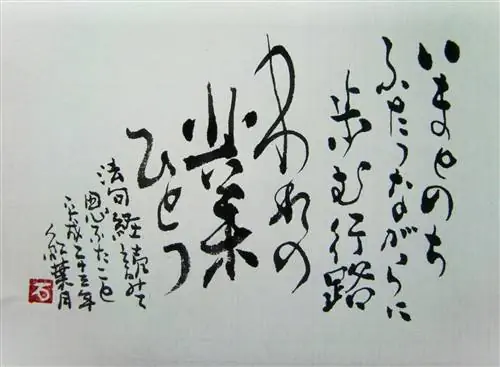 いまとのち
ふたつながらに
歩む行路
われの
業
ひとつ
法句経読みて
思ふたこと
平成二十五年
紅葉月
石